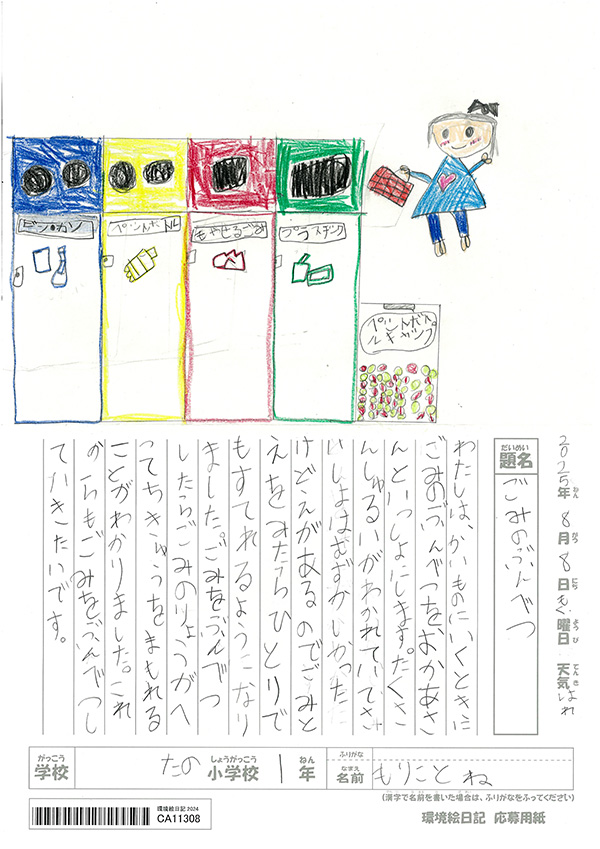 ビン・カン
ペットボトル
もやせるごみ
プラスチック
ペットボト
ルキャップ
2025年 8月 8日 もく曜日 天気 はれ
ねん がつ にち ようび てんき
だいめい
題名 ごみのぶんべつ
わたしは、かいものにいくときに
ごみのぶんべつをおかあさ
んといっしょにします。たくさ
んしゅるいがわかれていてさ
いしょはむずかしかった
けどえがあるのでごみと
えをみたらひとりで
もすてれるようになり
ました。ごみをぶんべつ
したらごみのりょうがへ
ってちきゅうをまもれる
ことがわかりました。これ
からもごみをぶんべつし
ていきたいです。
がっこう しょうがっこう ねん ふりがな
学校 たの 小学校 1年
なまえ
名前 もりことね
(漢字で名前を書いた場合は、ふりがなをふってください)
環境絵日記 2024
CA11308
環境絵日記 応募用紙